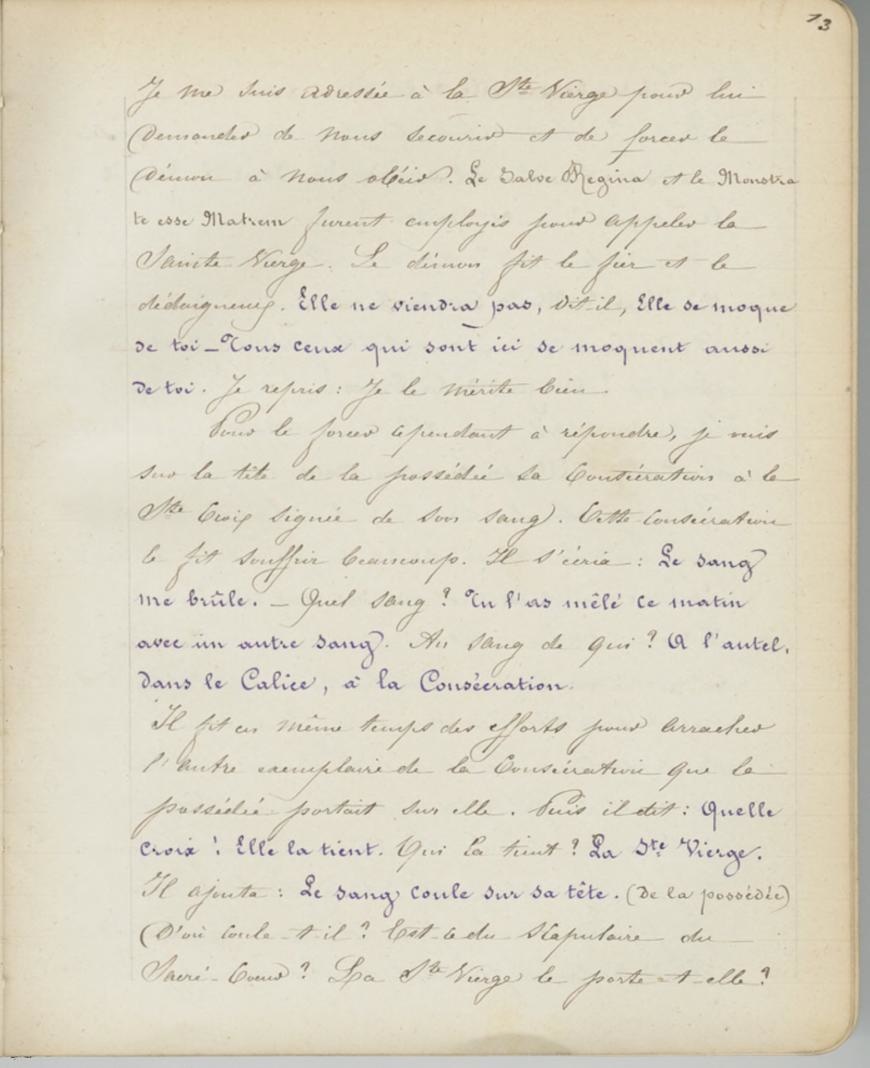 13
Je me suis adressée à la Ste Vierge pour lui
demander de nous secourir et de forcer le
démon à nous obéir. Le Salve Regina et le Monstra
te esse Matrem furent employés pour appeler la
Sainte Vierge. Le démon fit le fier et le
dédaigneux. Elle ne viendra pas, dit-il, Elle se moque
de toi _ Tous ceux qui sont ici se moquent aussi
de toi. Je repris : Je le mérite bien.
Pour le forcer cependant à répondre, je mis
sur la tête de la possédée sa Consécration à la
Ste Croix signée de son sang. Cette consécration
le fit souffrir beaucoup. Il s'écria : Le sang
me brûle. _ Quel sang ? Tu l'as mêlé ce matin
avec un autre sang. Au sang de qui ? A l'autel,
dans le Calice, à la Consécration.
Il fit en même temps des efforts pour arracher
l'autre exemplaire de la Consécration que la
possédée portait sur elle. Puis il dit : Quelle
croix ! Elle la tient. Qui la tient ? La Ste Vierge.
Il ajouta : Le sang coule sur sa tête. (De la possédée)
(D'où coule-t-il ? Est-ce du Scapulaire du
Sacré-Coeur ? La Ste Vierge le porte-t-elle ?